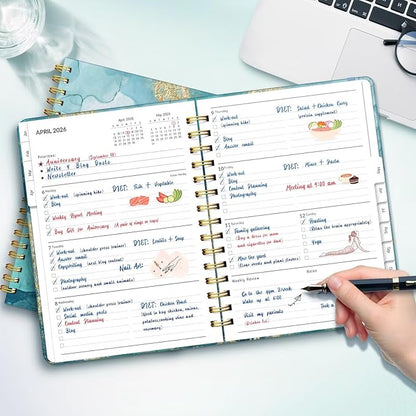 APRIL 2026
April 2026
May 2026
Priorities:
Anniversary (September 08)
Write 4 Blog Posts
Newsletter
6 Monday
Work-out (spinning bike)
Blog
DIET: Fish + Vegetable
Weekly Report Meeting
Buy Gift for Anniversary (A pair of rings or cups)
7 Tuesday
Work-out (shoulder press trainer)
Answer email
Copyediting (next blog content)
DIET: Lentils + Soup
Nail Art:
Photography
(outdoor scenery and small animals)
8 Wednesday
Work-out (shoulder press trainer)
Social media posts
Content Planning
Blog
DIET: Chicken Roast
(Need to buy chicken, onions,
potatoes, cooking wine and
rosemary)
9 Thursday
Work-out
(spinning bike)
Blog
Answer email
DIET: Salad + Chicken Curry
(protein supplement)
10 Friday
Work-out
Blog
Content Planning
Photography
DIET: Mince + Pasta
Meeting at 9:00 am
11 Saturday
Family gathering
(Buy a dress for mom
and cigarettes for dad)
Meet the guest
12 Sunday
Reading
(Relax the brain appropriately)
Yoga
Weekly Review
Notes
Go to the gym
Wake up at 6:00
Visit my parents